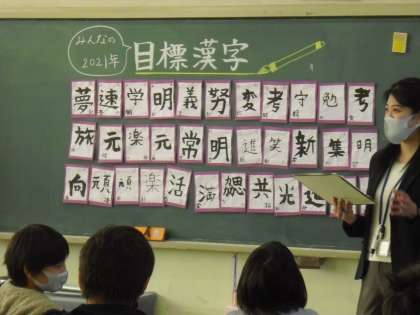 みんなの
2021年
目標漢字
夢 速 学 明 義 努 変 考 守 勉 考
旅 元 楽 元 常 明 進 笑 新 集 明
向 頑 頑 楽 活 満 勰 共 光 進